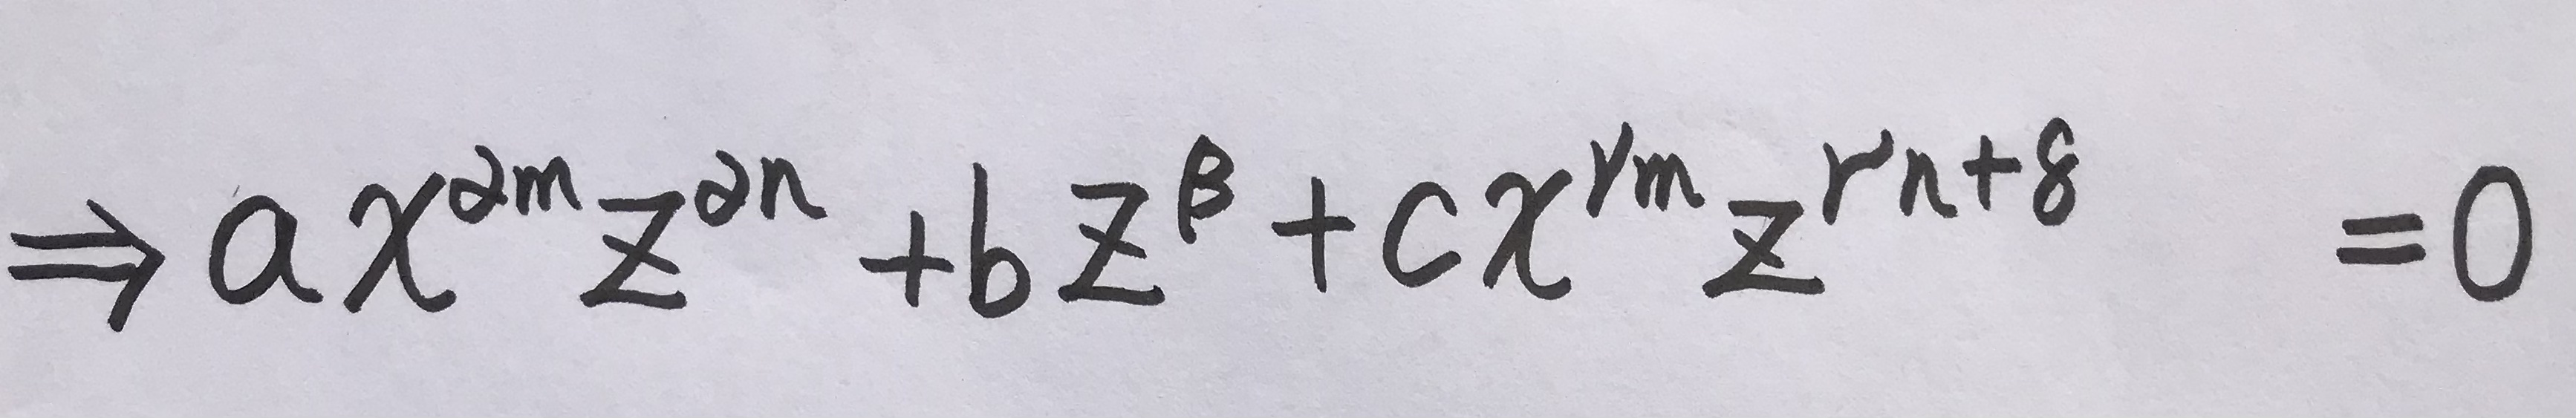 ⇒ax^{∂m}z^{∂n}+bz^{β}+cx^{γm}z^{γn+8}=0